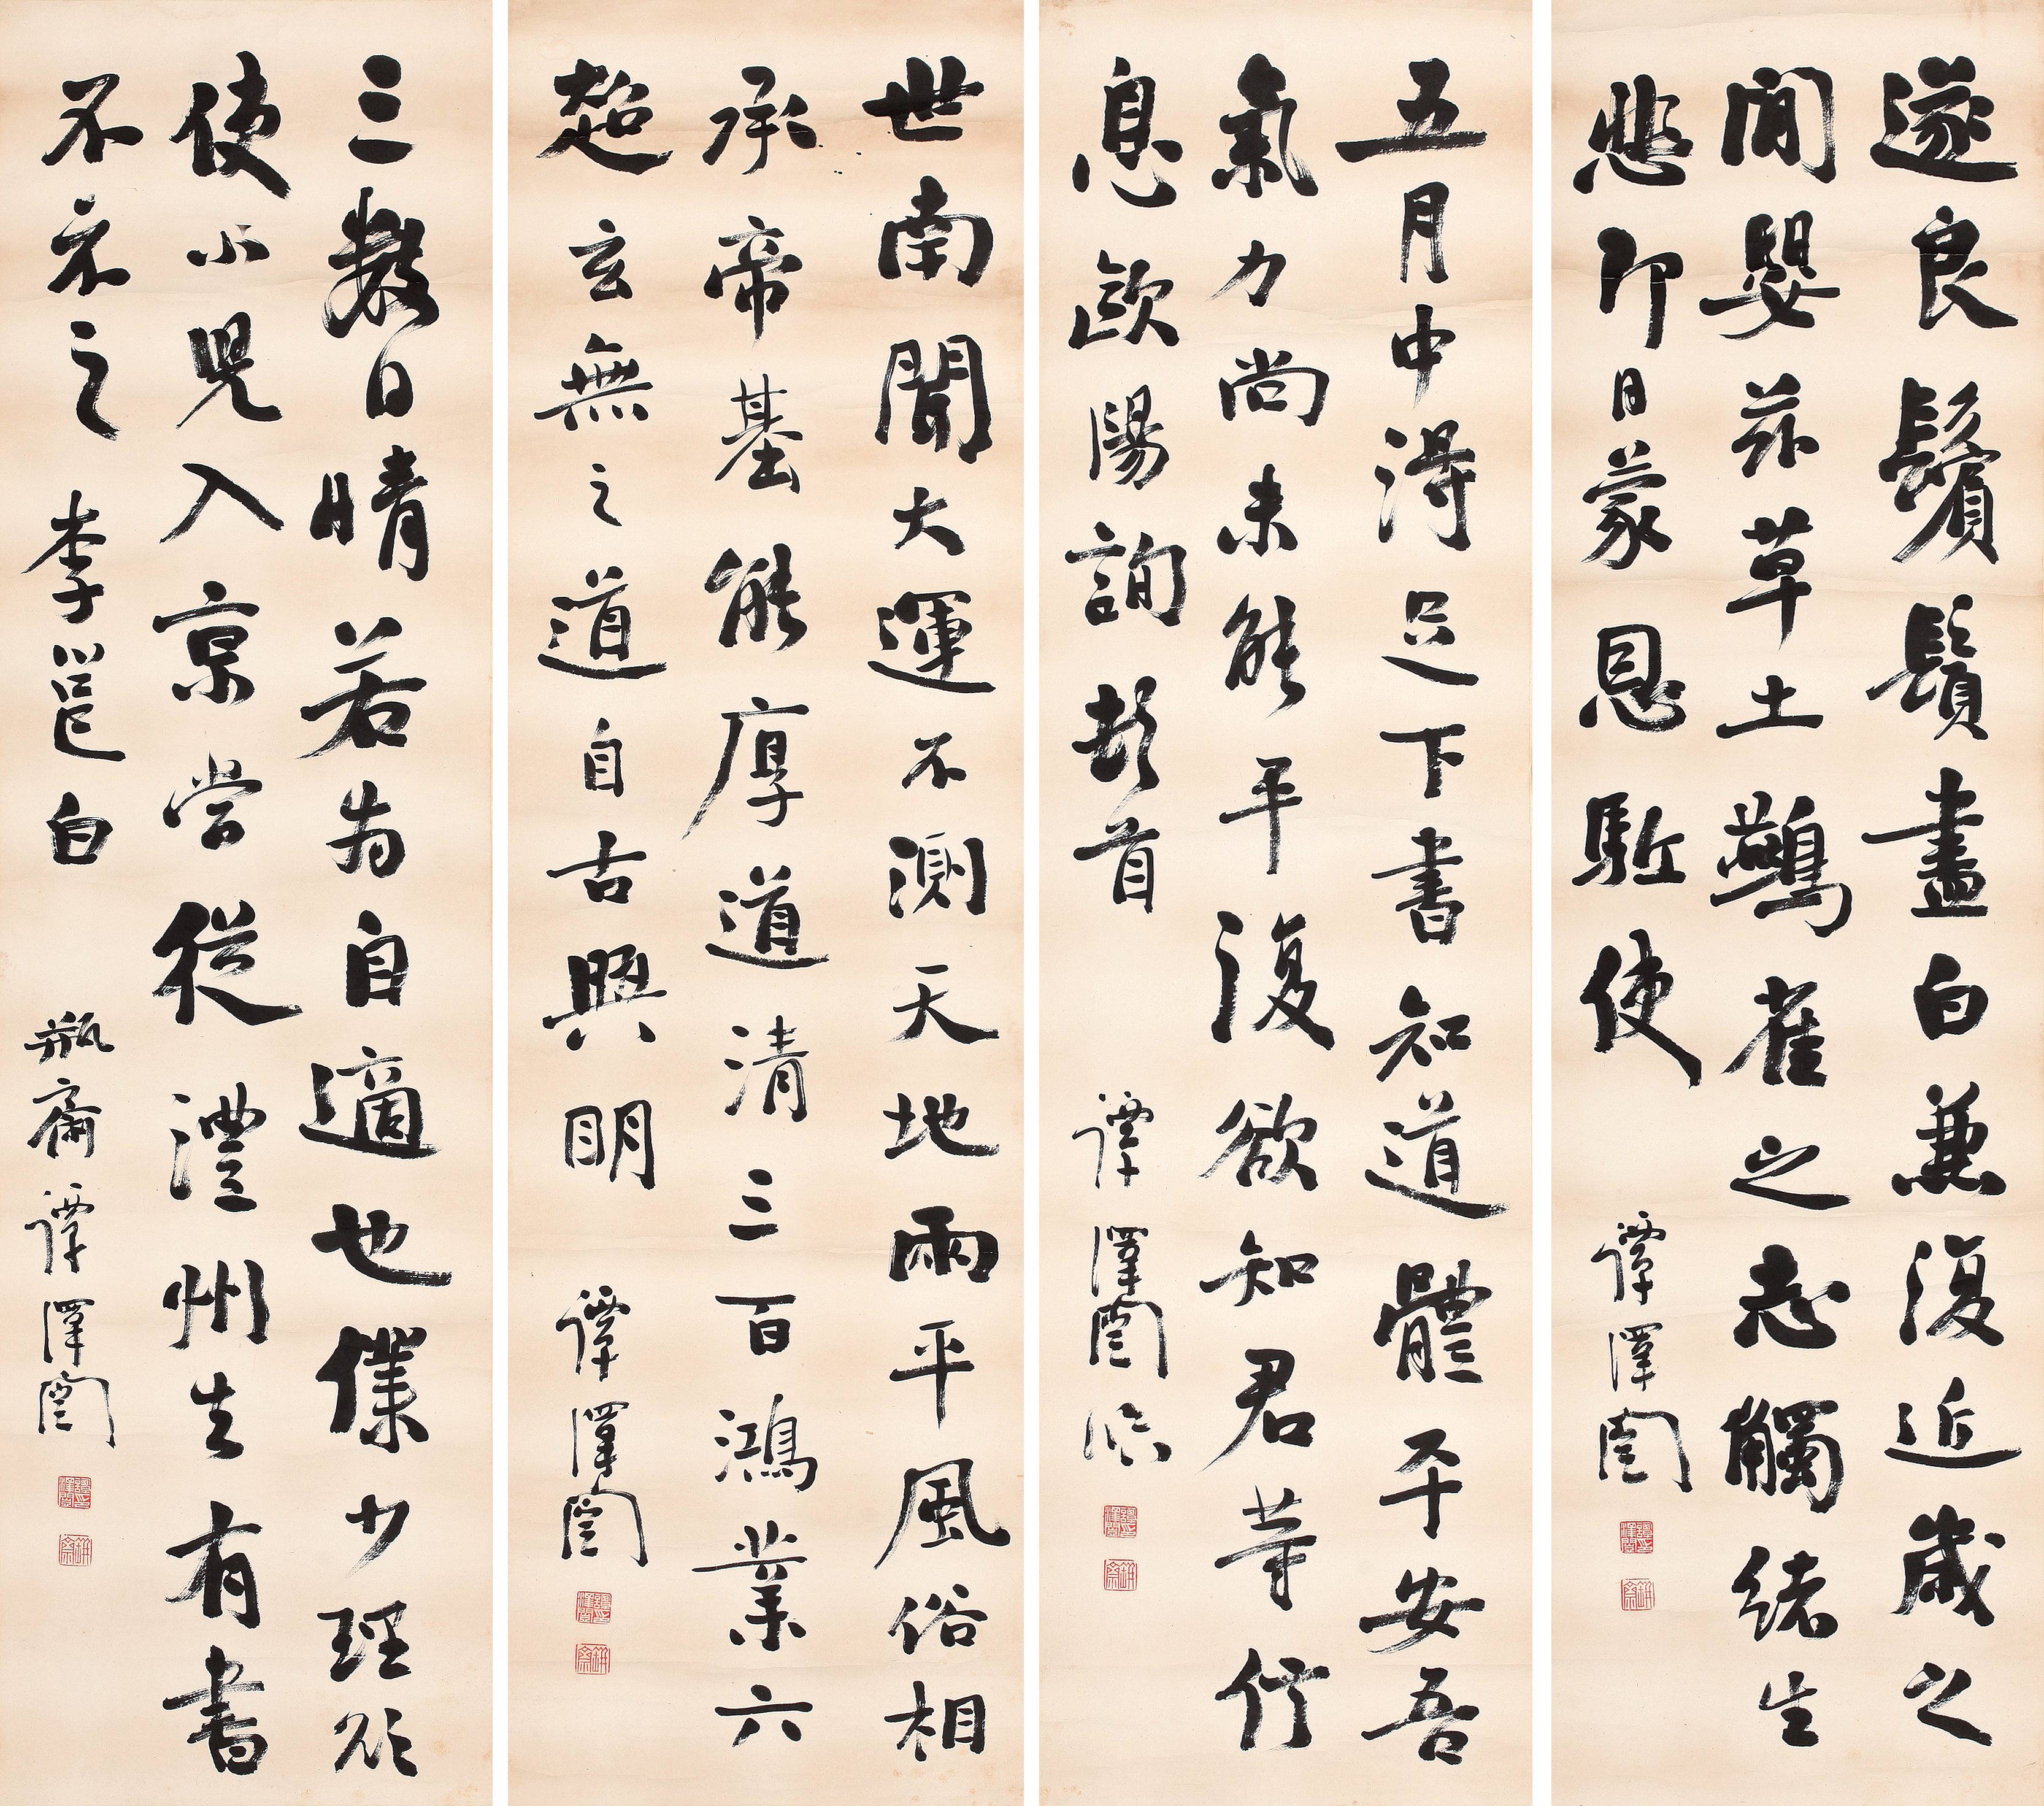 遂良鬢鬚盡白兼復近歲之
間嬰茲草土鷰雀之志觸緒生
悲即日蒙恩駈使
譚澤闓
五月中得足下書知道體平安吾
氣力尚未能平復欲知君等信
息歐陽詢頓首
譚澤闓臨
世南聞大運不測天地兩平風俗相
承帝基能厚道清三百鴻業六
超玄無之道自古興明
譚澤闓
三數日晴若為自適也僕少理欲
使小兒入京嘗從澧州去有書
不示之 李邕白
瓶齋譚澤闓